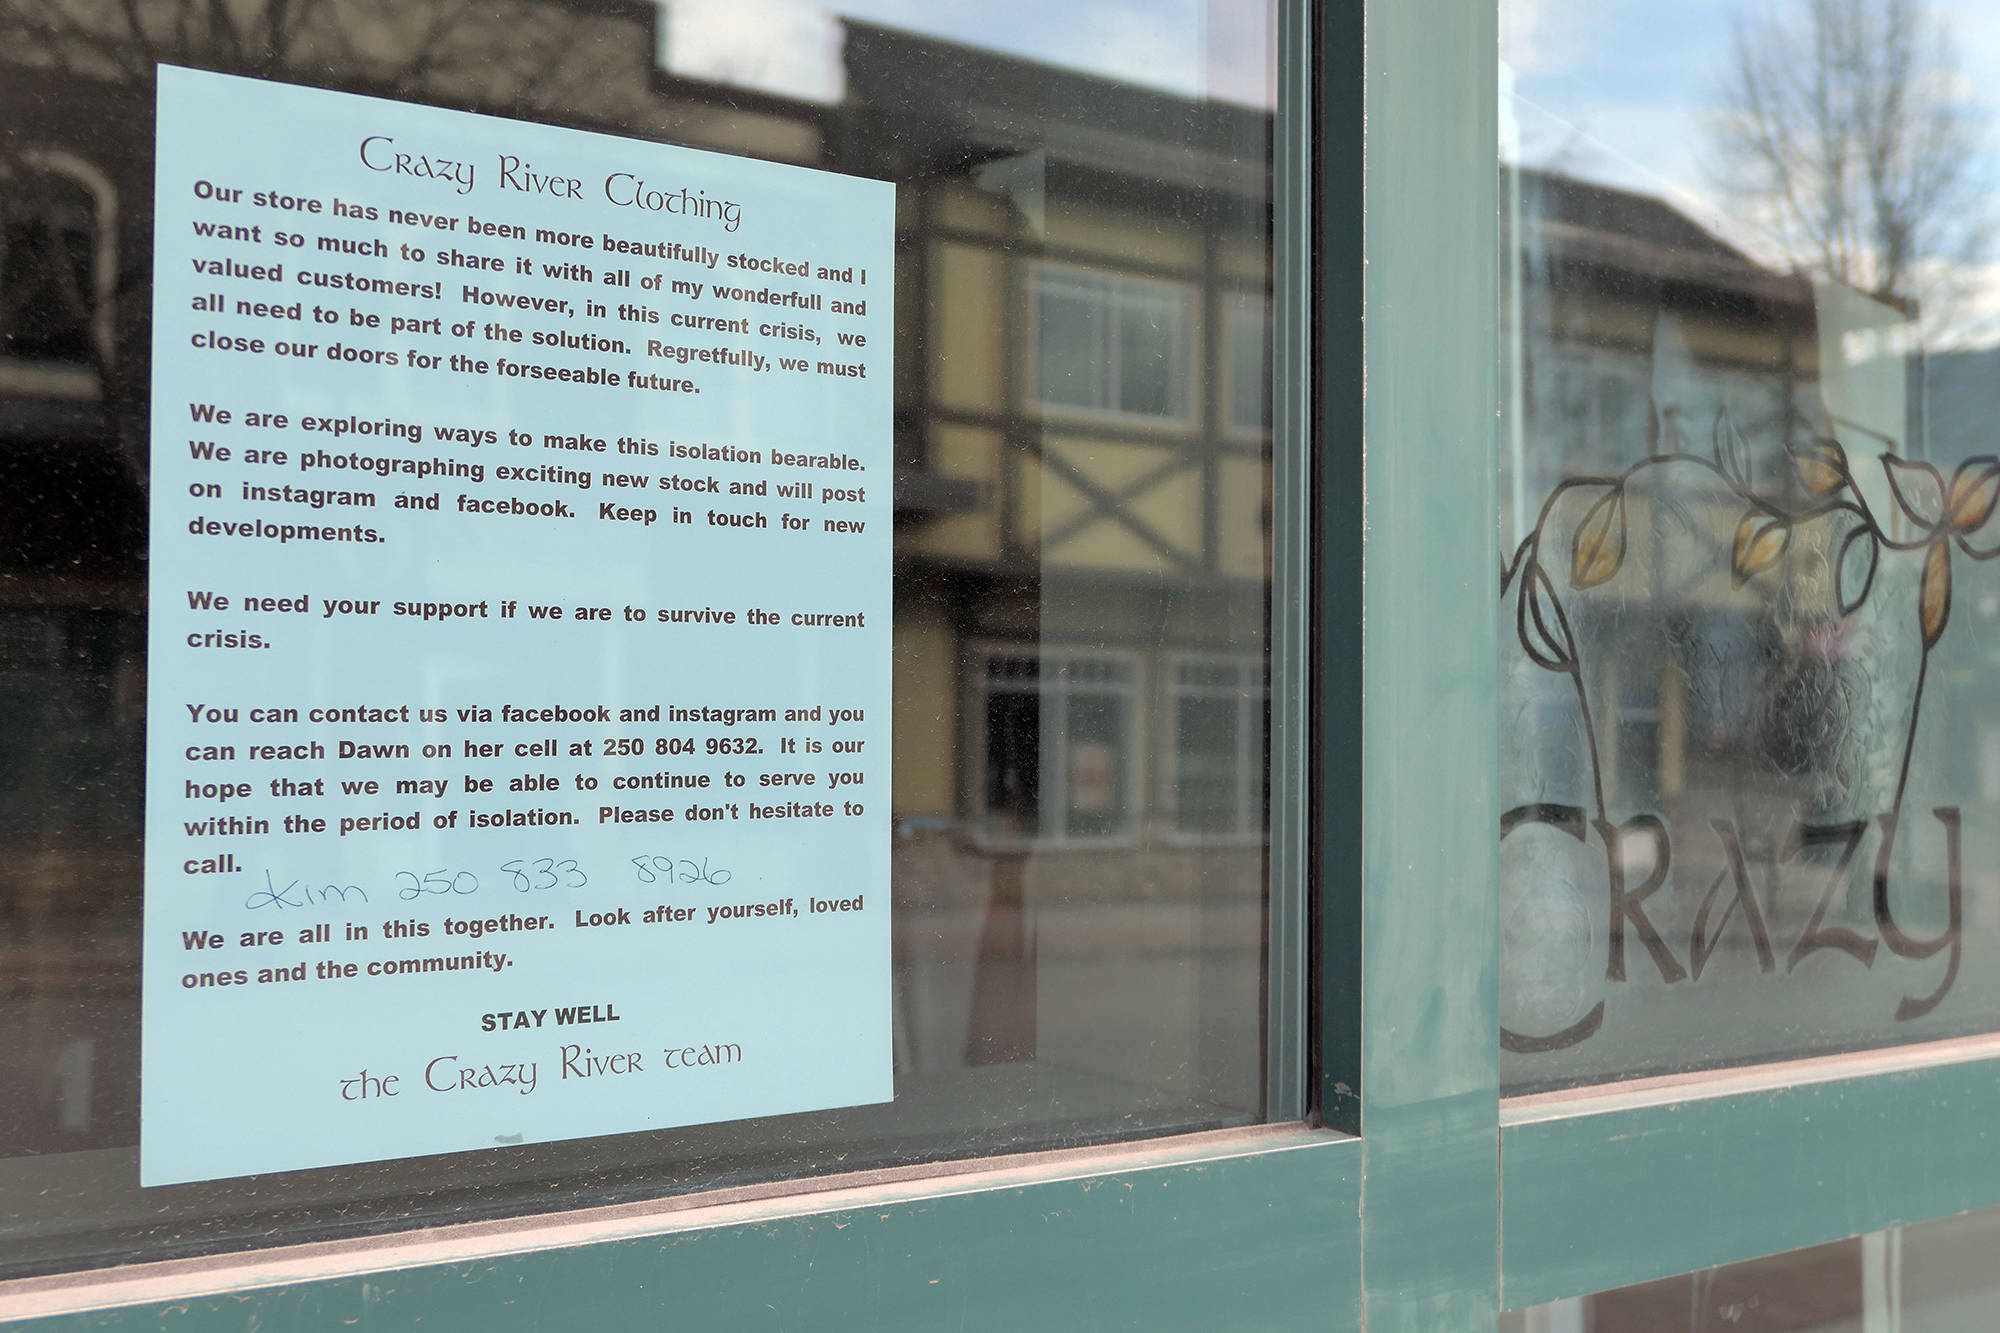 Crazy River Clothing
Our store has never been more beautifully stocked and I
want so much to share it with all of my wonderfull and
valued customers! However, in this current crisis, we
all need to be part of the solution. Regretfully, we must
close our doors for the forseeable future.
We are exploring ways to make this isolation bearable.
We are photographing exciting new stock and will post
on instagram and facebook. Keep in touch for new
developments.
We need your support if we are to survive the current
crisis.
You can contact us via facebook and instagram and you
can reach Dawn on her cell at 250 804 9632. It is our
hope that we may be able to continue to serve you
within the period of isolation. Please don't hesitate to
call.
Kim 250 833 8926
We are all in this together. Look after yourself, loved
ones and the community.
STAY WELL
the Crazy River team
Crazy